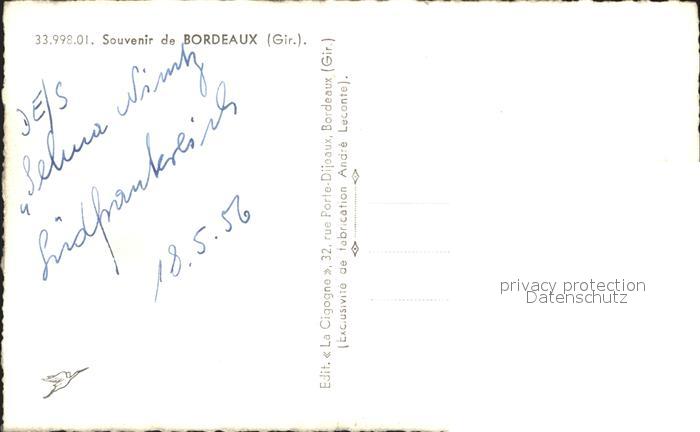 33.998.01. Souvenir de BORDEAUX (Gir.).
D E/S
"Selma Nimtz
Südfrankreich
18.5.56
Edit. « La Cigogne », 32, rue Porte-Dijeaux, Bordeaux (Gir.)
(Exclusivité de fabrication André Leconte).
privacy protection
Datenschutz